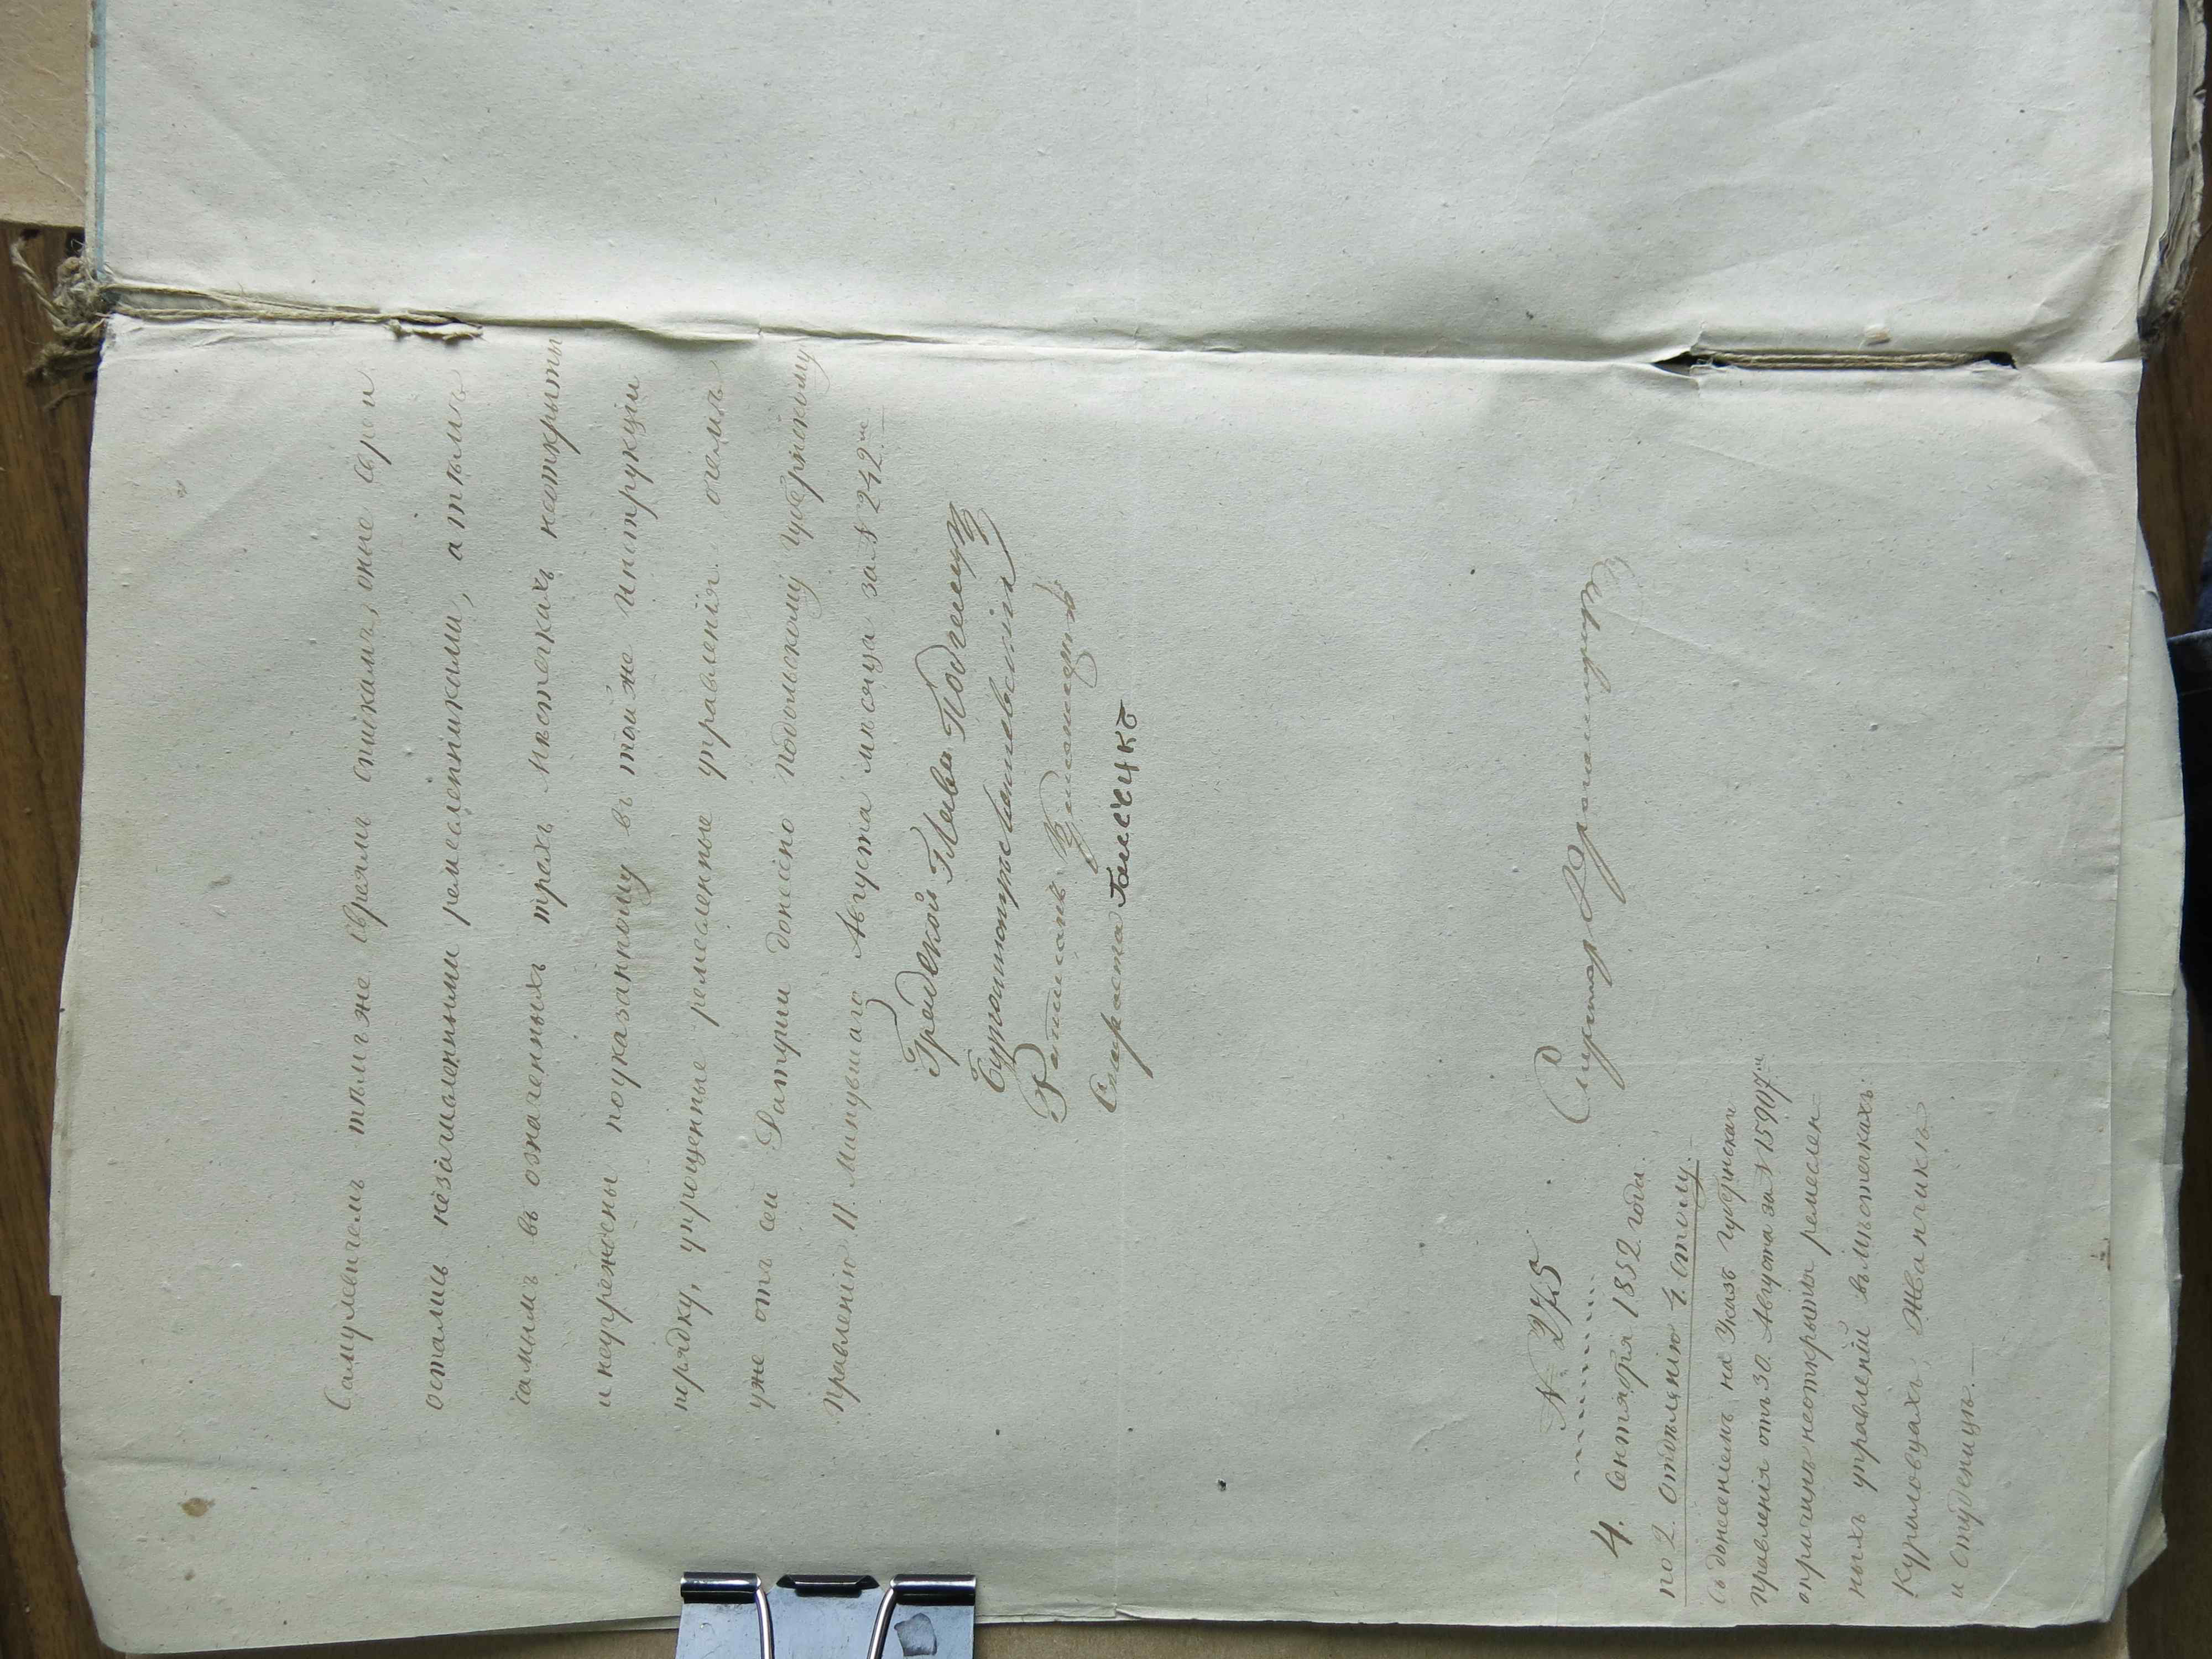 Самуловичемъ тѣмъ же евреямъ спискамъ, оные евреи
остались незачисленными ремесленниками, а тѣмъ
самымъ въ означенныхъ трехъ мѣстечкахъ неоткрыты
и неучреждены поуказанному въ той же инструкціи
порядку, упрощенные ремесленные управленія. о чемъ
уже отъ сей Ратуши донесено Подольскому Губернскому
Правленію 11. Минувшаго Августа мѣсяца за № 242.
Градской Глава
Бургомистръ
Ратманъ
Староста
Секретарь
№ 275
4. Сентября 1852 года.
по 2. Отдѣленію 4. столу.
Съ донесеніемъ на Указъ Губернскаго
Правленія отъ 30. Августа за № 15907
о причинѣ неоткрытія ремеслен
ныхъ управленій въ мѣстечкахъ:
Куриловцахъ, Жванчикѣ
и Студеницѣ.